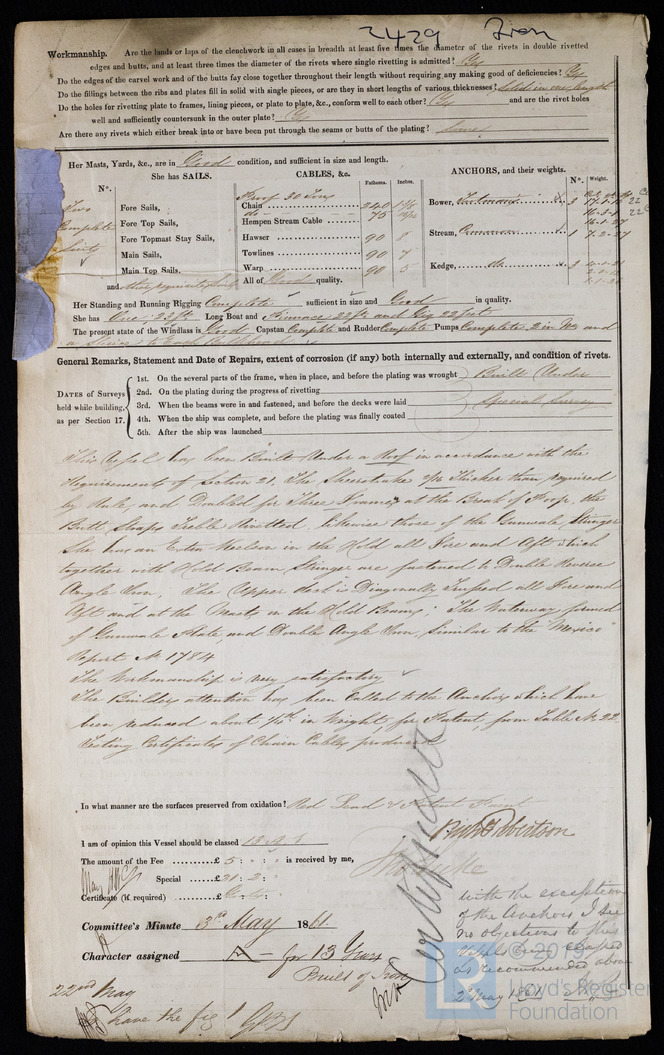 2429 Iron
Workmanship. Are the lands or laps of the clenchwork in all cases in breadth at least five times the diameter of the rivets in double rivetted
edges and butts, and at least three times the diameter of the rivets where single rivetting is admitted? Yes
Do the edges of the carvel work and of the butts fay close together throughout their length without requiring any making good of deficiencies? Yes
Do the fillings between the ribs and plates fill in solid with single pieces, or are they in short lengths of various thicknesses? Solid in one length
Do the holes for rivetting plate to frames, lining pieces, or plate to plate, &c., conform well to each other? Yes and are the rivet holes
well and sufficiently countersunk in the outer plate? Yes
Are there any rivets which either break into or have been put through the seams or butts of the plating? Some
Her Masts, Yards, &c., are in Good condition, and sufficient in size and length.
She has SAILS. CABLES, &c. Fathoms. Inches. ANCHORS, and their weights. Nº. Weight.
Nº.
Proof 30 Tons
Two Complete Suits
Fore Sails, Chain 240
Fore Top Sails, Hempen Stream Cable 75
Fore Topmast Stay Sails, Hawser 90 8
Main Sails, Towlines 90 7
Main Top Sails, Warp 90 5
and All of Good quality.
Bower, 3
Stream, Common 1 7-2-27
Kedge, do
Her Standing and Running Rigging Complete sufficient in size and Good in quality.
She has One 23ft Long Boat and Pinnace 22ft and Gig 22 feet
The present state of the Windlass is Good Capstan Complete and Rudder Complete Pumps Complete 2 in and
General Remarks, Statement and Date of Repairs, extent of corrosion (if any) both internally and externally, and condition of rivets.
DATES of Surveys held while building, as per Section 17.
1st. On the several parts of the frame, when in place, and before the plating was wrought Built Under
2nd. On the plating during the progress of rivetting
3rd. When the beams were in and fastened, and before the decks were laid Special Survey
4th. When the ship was complete, and before the plating was finally coated
5th. After the ship was launched
This Vessel has been Built Under a Roof in accordance with the
Requirements of Section 21, The Sheerstrake Thicker than required
by Rule, and Doubled for Three Frames at the Break of Poop, the
Butt Straps Treble Rivetted, likewise those of the Gunwale Stringer
She has an Extra Keelson in the Hold all Fore and Aft which
together with Hold Beam Stringer are fastened to Double Reverse
Angle Iron; The Upper deck is Diagonally Trussed all Fore and
Aft and at the Masts on the Hold Beams; The Waterway formed
of Gunwale Plate and Double Angle Iron, similar to the "Mexico"
Report No 1784
The Workmanship is very satisfactory
The Builders attention has been Called to the Anchors which have
been reduced about in Weight for Patent, from Table No 22
Testing Certificates of Chain Cables produced
In what manner are the surfaces preserved from oxidation? Red Lead & Patent Paint
I am of opinion this Vessel should be classed
Robertson
The amount of the Fee £ 5 : : is received by me,
Special £
Certificate (if required) £
Committee's Minute 3rd May 1861
Character assigned A for 13 Years
Built of Iron
22nd May
have the fig 1
with the exception
of the Anchors I see
no objections to this
Vessel being classed
as recommended above
2 May 1861
© 2019
Lloyd's Register
Foundation